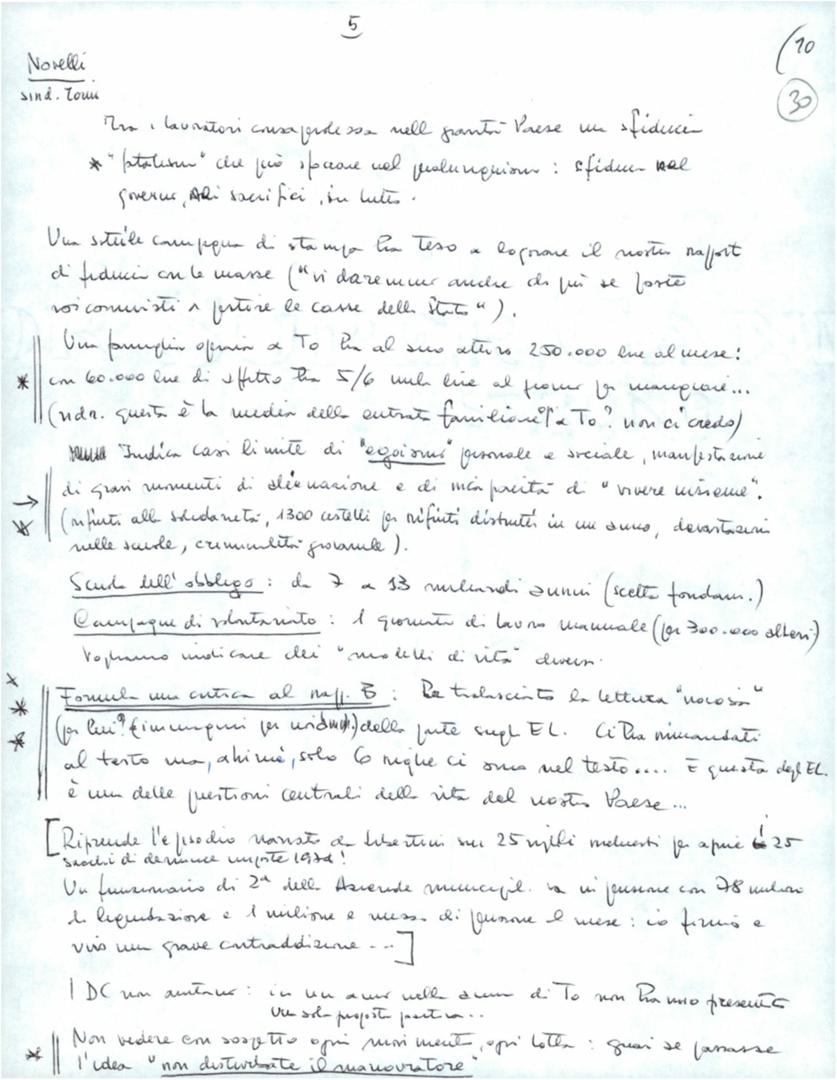 5
10
30
Novelli
sind. Torino
Tra i lavoratori consapevolezza nella gravità Paese ma sfiducia
* "fatalismo" che può sfociare nel : sfiducia nel
governo, nei sacrifici, in tutto.
Una sottile campagna di stampa ha teso a logorare il nostro rapporto
di fiducia con le masse ("vi daremmo anche di più se foste
voi comunisti a gestire le casse dello Stato").
Una famiglia operaia a To ha al suo attivo 250.000 lire al mese:
* con 60.000 lire di affitto ha 5/6 mila lire al giorno per mangiare...
(ndr. questa è la media delle entrate familiari a To? non ci credo)
Indica casi limite di "egoismo" personale e sociale, manifestazione
→ di gravi momenti di alienazione e di incapacità di "vivere insieme".
* (rifiuti alla solidarietà, 1300 cestelli per rifiuti distrutti in un anno, devastazioni
nelle scuole, criminalità giovanile).
Scuola dell'obbligo: da 7 a 13 miliardi annui (scelta fondam.)
Campagne di volontariato: 1 giornata di lavoro manuale (per 300.000 alberi)
Vogliamo indicare dei "modelli di vita" diversi.
x
* Formula una critica al rapp. B: Ha tralasciato la lettura "noiosa"
* (per lui? ) della parte sugli EL. Ci ha rimandati
al testo ma, ahimè, solo 6 righe ci sono nel testo.... E questa degli EL.
è una delle questioni centrali della vita del nostro Paese...
[Riprende l'episodio narrato da Libertini sui 25 vigili richiesti per aprire 25
sacchi di denunce imposte 1974!
Un funzionario di 2ª delle Aziende municipal. va in pensione con 78 milioni
di liquidazione e 1 milione e mezzo di pensione al mese: io firmo e
vivo una grave contraddizione ...]
I DC non aiutano: in un anno nella di To non hanno presentato
una sola proposta positiva..
Non vedere con sospetto ogni movimento, ogni lotta: guai se passasse
* l'idea "non disturbate il manovratore"